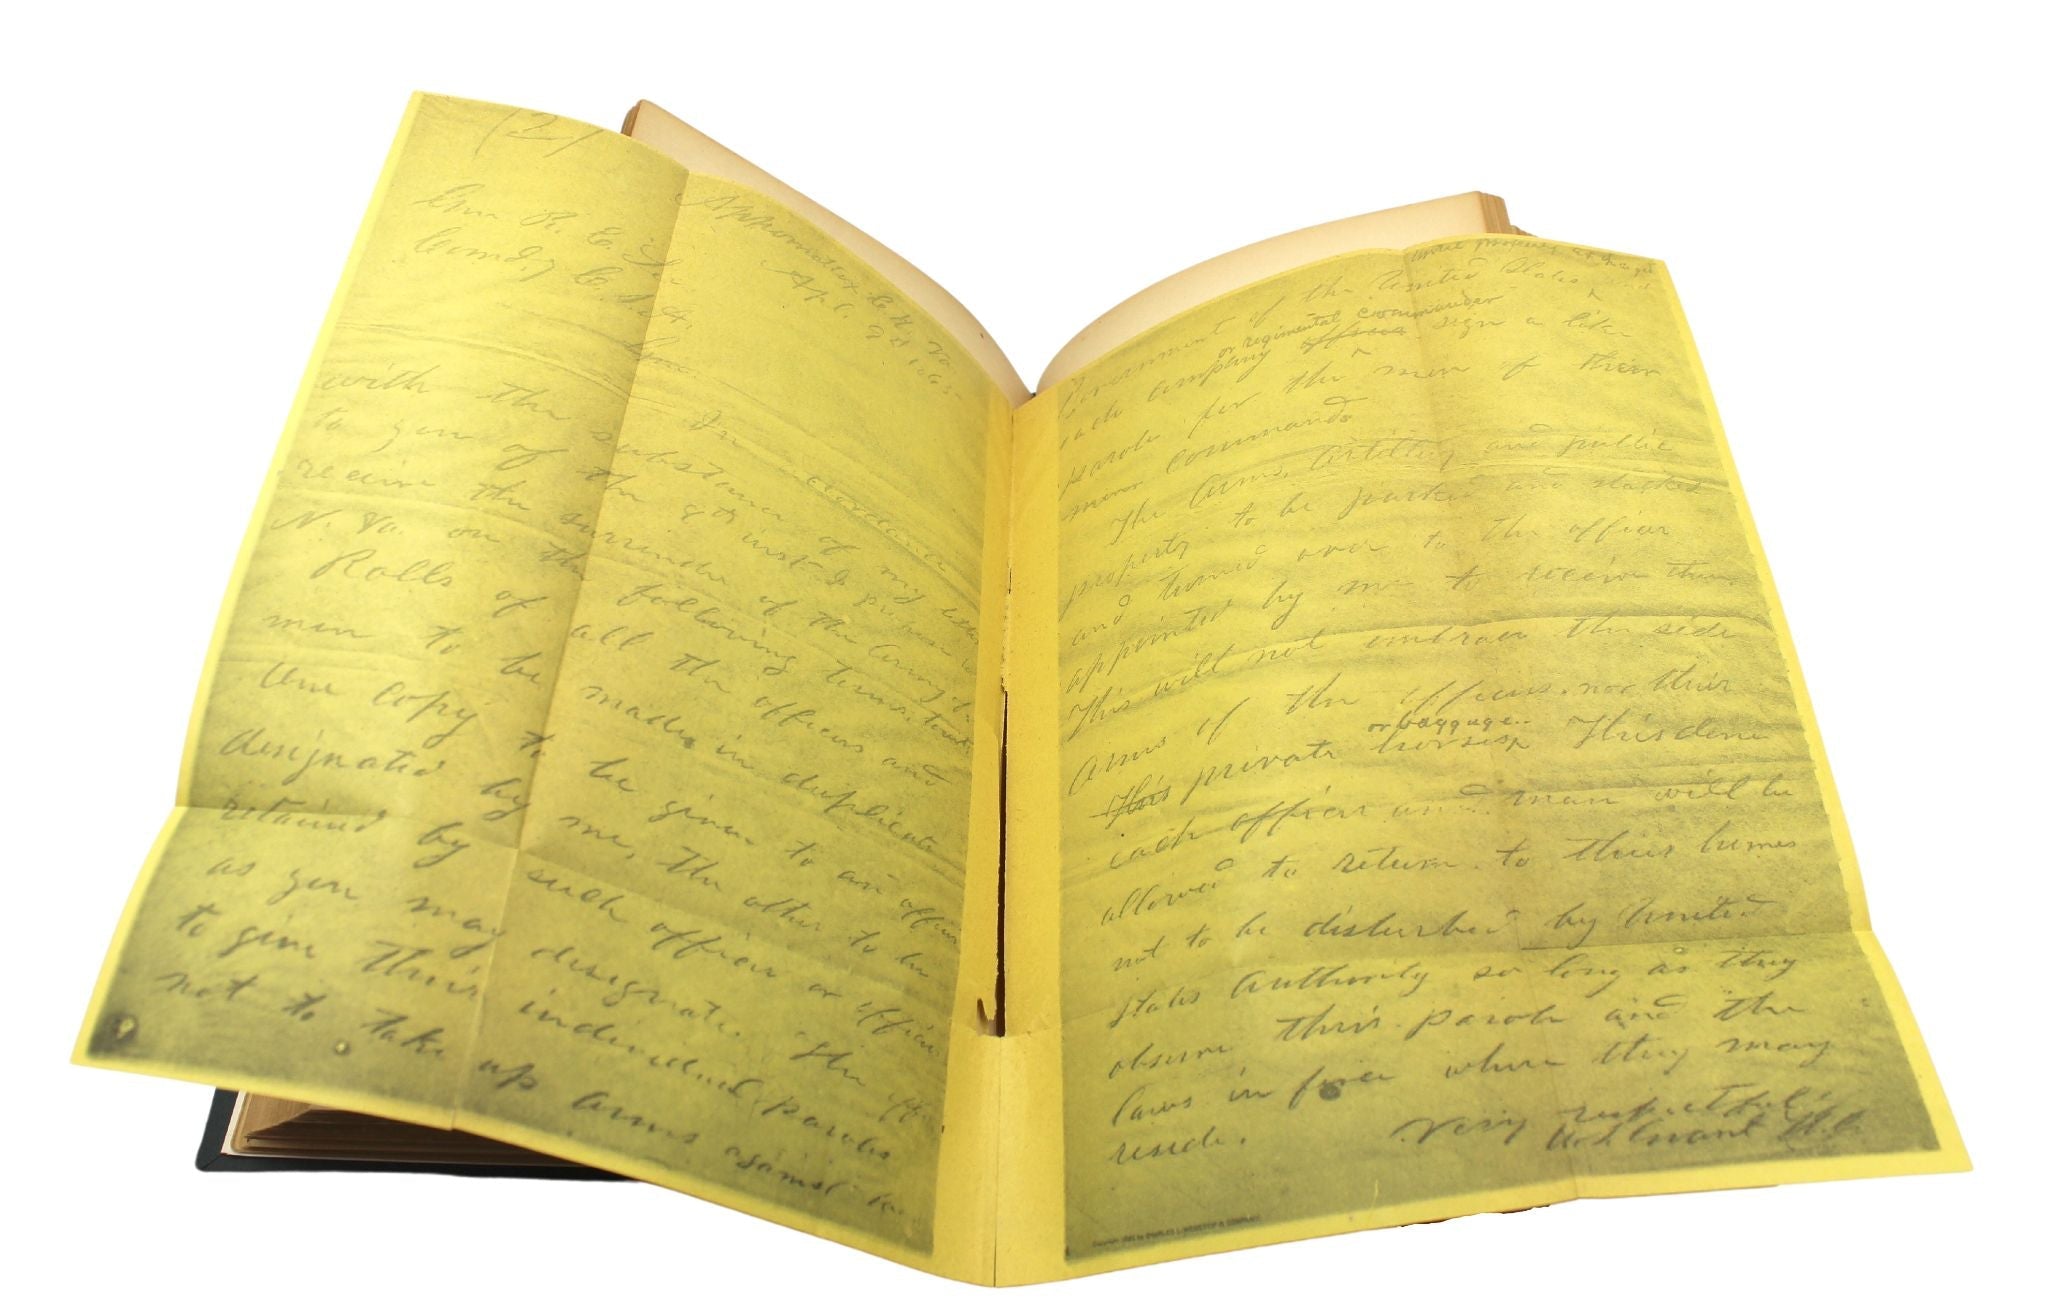 (2)
Appomattox C. H. Va.
Apl. 9th 1865.
Gen. R. E. Lee
Comd.g C. S. A.
Gen.
In accordance
with the substance of my letter
to you of the 8th inst. I propose to
receive the surrender of the Army of
N. Va. on the following terms, towit:
Rolls of all the officers and
men to be made in duplicate
One copy to be given to an officer
designated by me, the other to be
retained by such officer or officers
as you may designate. The officers
to give their individual paroles
not to take up arms against the
until properly
Government of the United States and
or regimental commander
each company officer sign a like
parole for the men of their
commands
The Arms, Artillery and public
property to be parked and stacked
and turned over to the officer
appointed by me to receive them
This will not embrace the side
Arms of the officers, nor their
or baggage.
This private horses Thisdone
each officer and man will be
allowed to return to their homes
not to be disturbed by United
States Authority so long as they
observe their parole and the
laws in force where they may
reside.
Very respectfully
U. S. Grant Lt. Gl.
Copyright 1885 by CHARLES L. WEBSTER & COMPANY